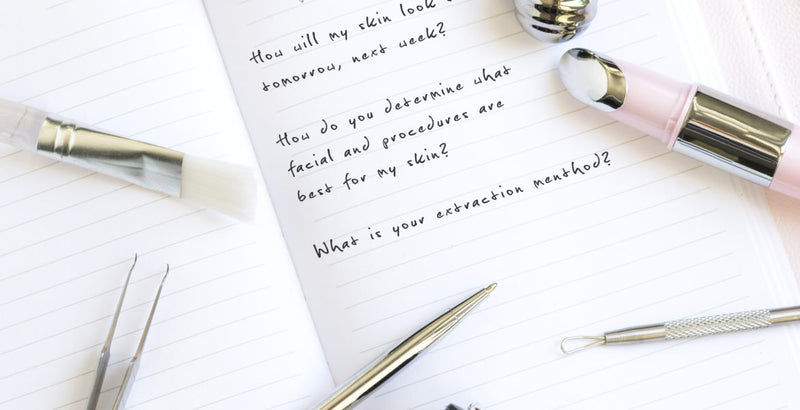 How will my skin look
tomorrow, next week?
How do you determine what
facial and procedures are
best for my skin?
What is your extraction menthod?